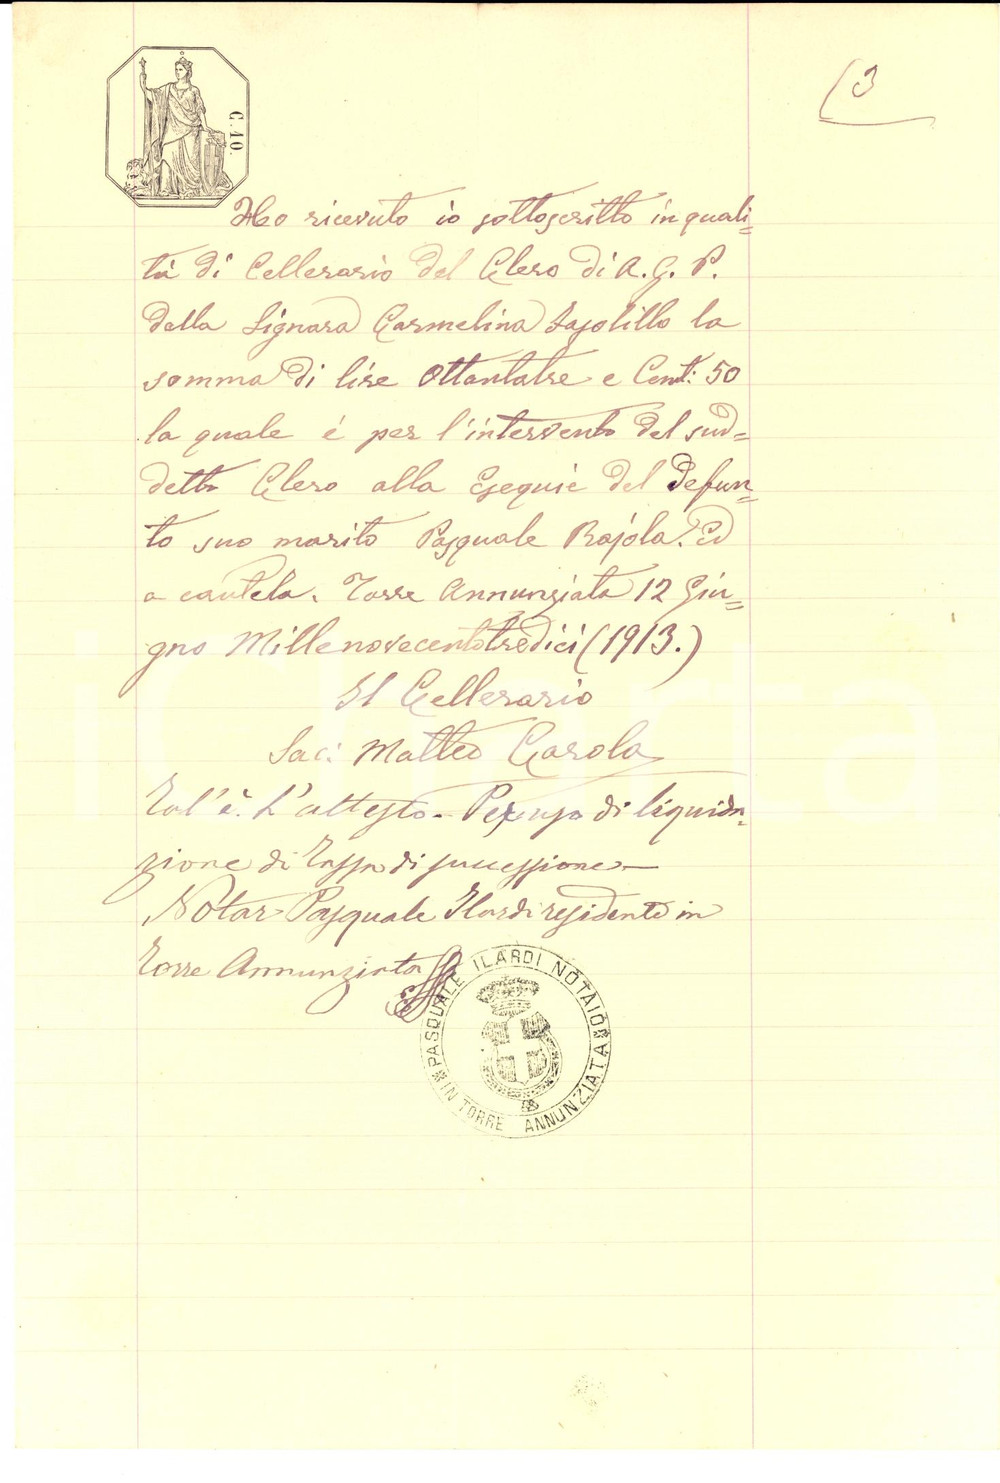 C. 40.
3
Ho ricevuto io sottoscritto in quali=
tà di Cellerario del Clero di A. G. P.
dalla Signora Carmelina Iapolillo la
somma di lire Ottantatre e Cent: 50
la quale è per l'intervento del sud=
detto Clero alla Esequie del Defun=
to suo marito Pasquale Rajola. Ed
a cautela. Torre Annunziata 12 Giu=
gno Millenovecentotredici (1913.)
Il Cellerario
Sac: Matteo Carola
Tal'è. L'attesto. Per uso di liquida=
zione di tassa di successione—
Notar Pasquale Ilardi residente in
Torre Annunziata
PASQUALE ILARDI NOTAIO
IN TORRE ANNUNZIATA
iCharta